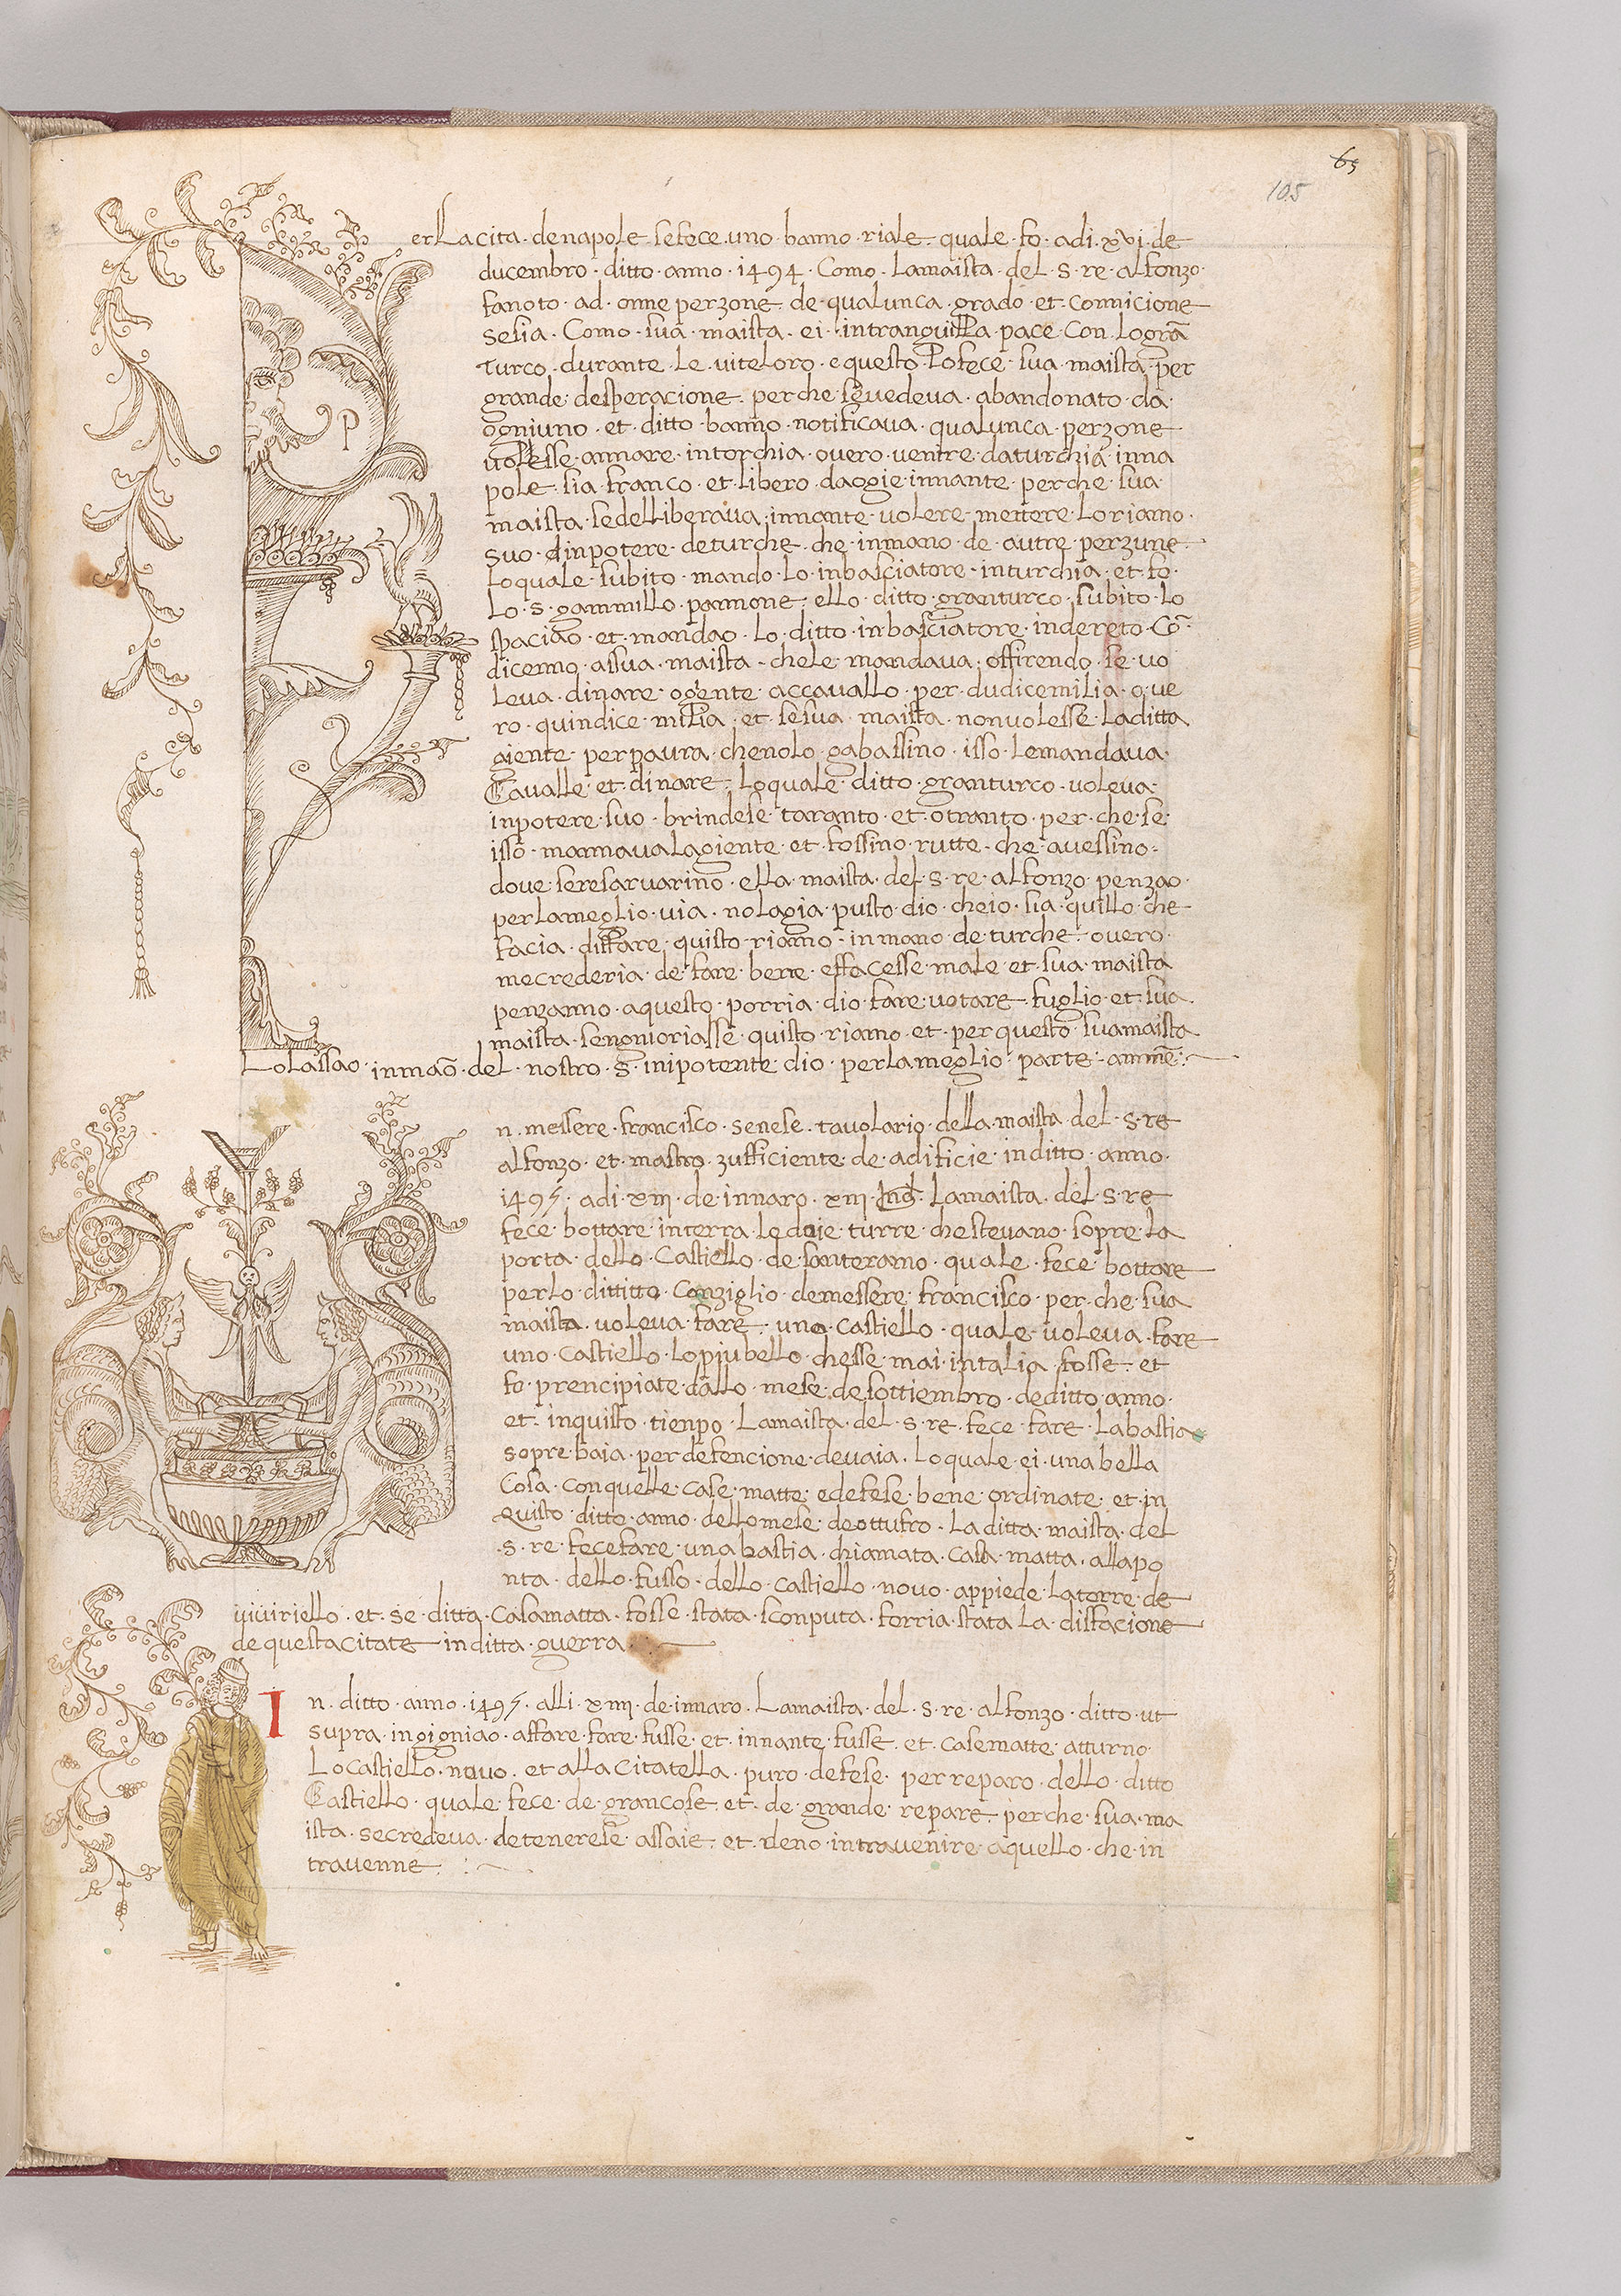 65
105
P
er La cita · de napole · se fece · uno · banno · riale · quale · fo · adi · xvi · de
ducembro · ditto · anno · 1494 · Como · la maista · del · s · re · alfonzo ·
fa noto · ad · onne perzone · de · qualunca · grado · et · connicione
se sia · Como · sua · maista · ei · in tranquilla · pace · con · lo grā
turco · durante · le · vite loro · e questo · lo fece · sua · maista · per
grande · desperacione · perche · se vedeva · abandonato · da ·
ogniuno · et · ditto · banno · notificava · qualunca · perzone
volesse · annare · in torchia · overo · venire · da turchia · in na
pole · sia · franco · et · libero · da ogie · innante · perche · sua ·
maista · se delliberava · innante · volere · mettere · lo riamo ·
suo · dinpotere · de turche · che · in mano · de · autre · perzune ·
lo quale · subito · mando · lo · inbasciatore · in turchia · et · fo ·
lo · s · gammillo · pannone · ello · ditto · gran turco · subito · lo
spaciao · et · mandao · lo · ditto · inbasciatore · indereto · Cō
dicenno · assua · maista · che le · mandava · offirendo · se · vo
leva · dinare · o gente · accavallo · per · dudice milia · o · ve
ro · quindice · milia · et · se sua · maista · non volesse · la ditta
giente · per paura · che no lo · gabassino · isso · le mandava ·
Cavalle · et · dinare · lo quale · ditto · gran turco · voleva ·
in potere · suo · brindese · taranto · et · otranto · per · che · se ·
isso · mannava la giente · et · fossino · rutte · che · avessino ·
dove · se resarvarino · ella · maista · del · s · re · alfonzo · penzao ·
per la meglio · via · no lagia · pusto · dio · che io · sia · quillo · che
facia · disfare · quisto · riamo · in mano · de turche · overo ·
me crederia · de · fare · bene · effacesse · male · et · sua · maista
penzanno · aquesto · porria · dio · fare · votare · fuglio · et · sua ·
maista · se nomoriasse · quisto · riamo · et · per questo · sua maista
Lo lassao · in māo · del · nostro · s · inipotente · dio · per la meglio · parte · ammē ·
n · messere · francisco · senese · tavolario · della · maista · del · s · re
alfonzo · et · mastro · zufficiente · de · adificie · in ditto · anno ·
1495 · adi · xiii · de · innaro · xiii · Ind · La maista · del · s · re
fece · bottare · in terra · le doie · turre · che stevano · sopre · la
porta · dello · Castiello · de · santeramo · quale · fece · bottare
per lo · dittitto · Conziglio · de messere · francisco · per · che · sua
maista · voleva · fare · uno · castiello · quale · voleva · fare
uno · castiello · lo piu bello · chesse · mai · in talia · fosse · et
fo · prencipiate · dallo · mese · de sottiembro · de ditto · anno ·
et · in quisto · tienpo · La maista · del · s · re · fece · fare · la bastia
sopre · baia · per defencione · de vaia · lo quale · ei · una bella
Cosa · con quelle · case · matte · e defese · bene · ordinate · et · in
Quisto · ditto · anno · dello mese · de ottufro · la ditta · maista · del
· s · re · fece fare · una bastia · chiamata · Casa · matta · alla po
nta · dello · fusso · dello · castiello · novo · appiede · la torre · de
viviriello · et · se · ditta · Casamatta · fosse · stata · sconputa · forria · stata · la · disfacione
de questa citate · in ditta · guerra ·
I
n · ditto · anno · 1495 · alli · xiiii · de innaro · La maista · del · s · re · alfonzo · ditto · ut
supra · ingigniao · affare · fare · fusse · et · innante · fusse · et · casematte · atturno ·
Lo Castiello · novo · et alla citatella · puro · defese · per reparo · dello · ditto
Castiello · quale · fece · de · gran cose · et · de · grande · repare · perche · sua · ma
ista · se credeva · de tenerese · assaie · et · neno · intravenire · aquello · che · in
travenne ·